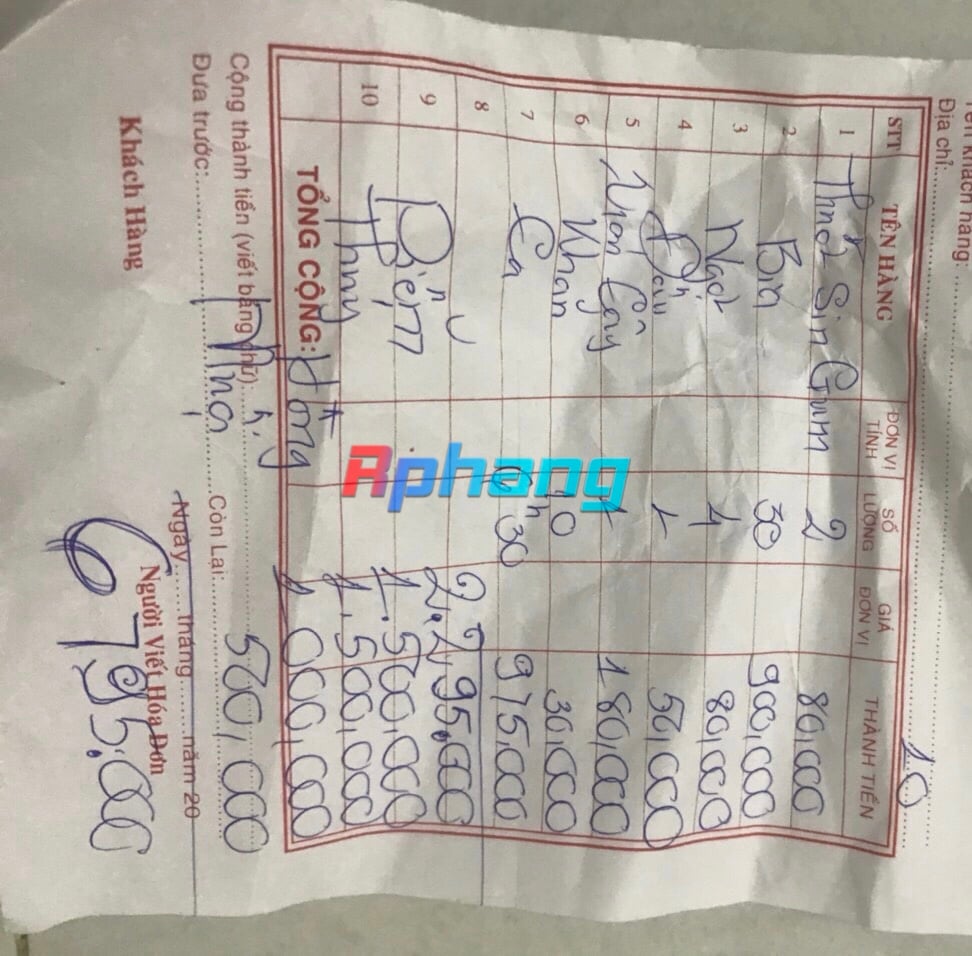 Tên khách hàng:
Địa chỉ: 10
STT TÊN HÀNG ĐƠN VỊ TÍNH SỐ LƯỢNG GIÁ ĐƠN VỊ THÀNH TIỀN
1 SinGum 2 80,000
2 Bia 30 900,000
3 Ngọt 4 80,000
4 Đậu 1 50,000
5 Cây 1 180,000
6 Nhang 10 30,000
7 Ca 30 975,000
8 2,295,000
9 Điện 1.500,000
10 Thùy 1,500,000
TỔNG CỘNG: 1,000,000
Cộng thành tiền (viết bằng chữ):
Đưa trước: Còn Lại: 500,000
Ngày tháng năm 20
Khách Hàng Người Viết Hóa Đơn
6795.000
Rphang